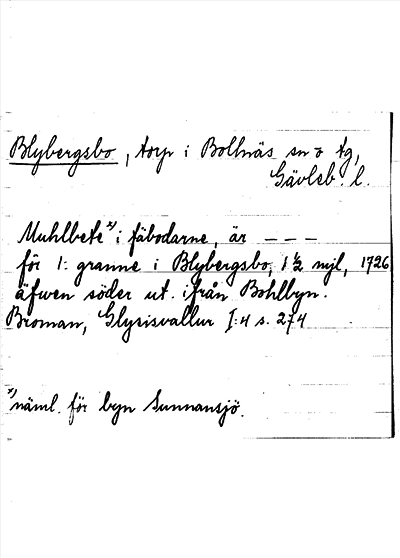 Blybergsbo, torp i Bollnäs sn o tg,
Gävleb. l.
Muhlbete x) i fäbodarne, är – – –
för 1: granne i Blybergsbo, 1 ½ mjl, 1726
äfwen söder ut. ifrån Bohlbyn.
Broman, Glysisvallur I:4 s. 274
x) näml. för byn Sunnansjö.